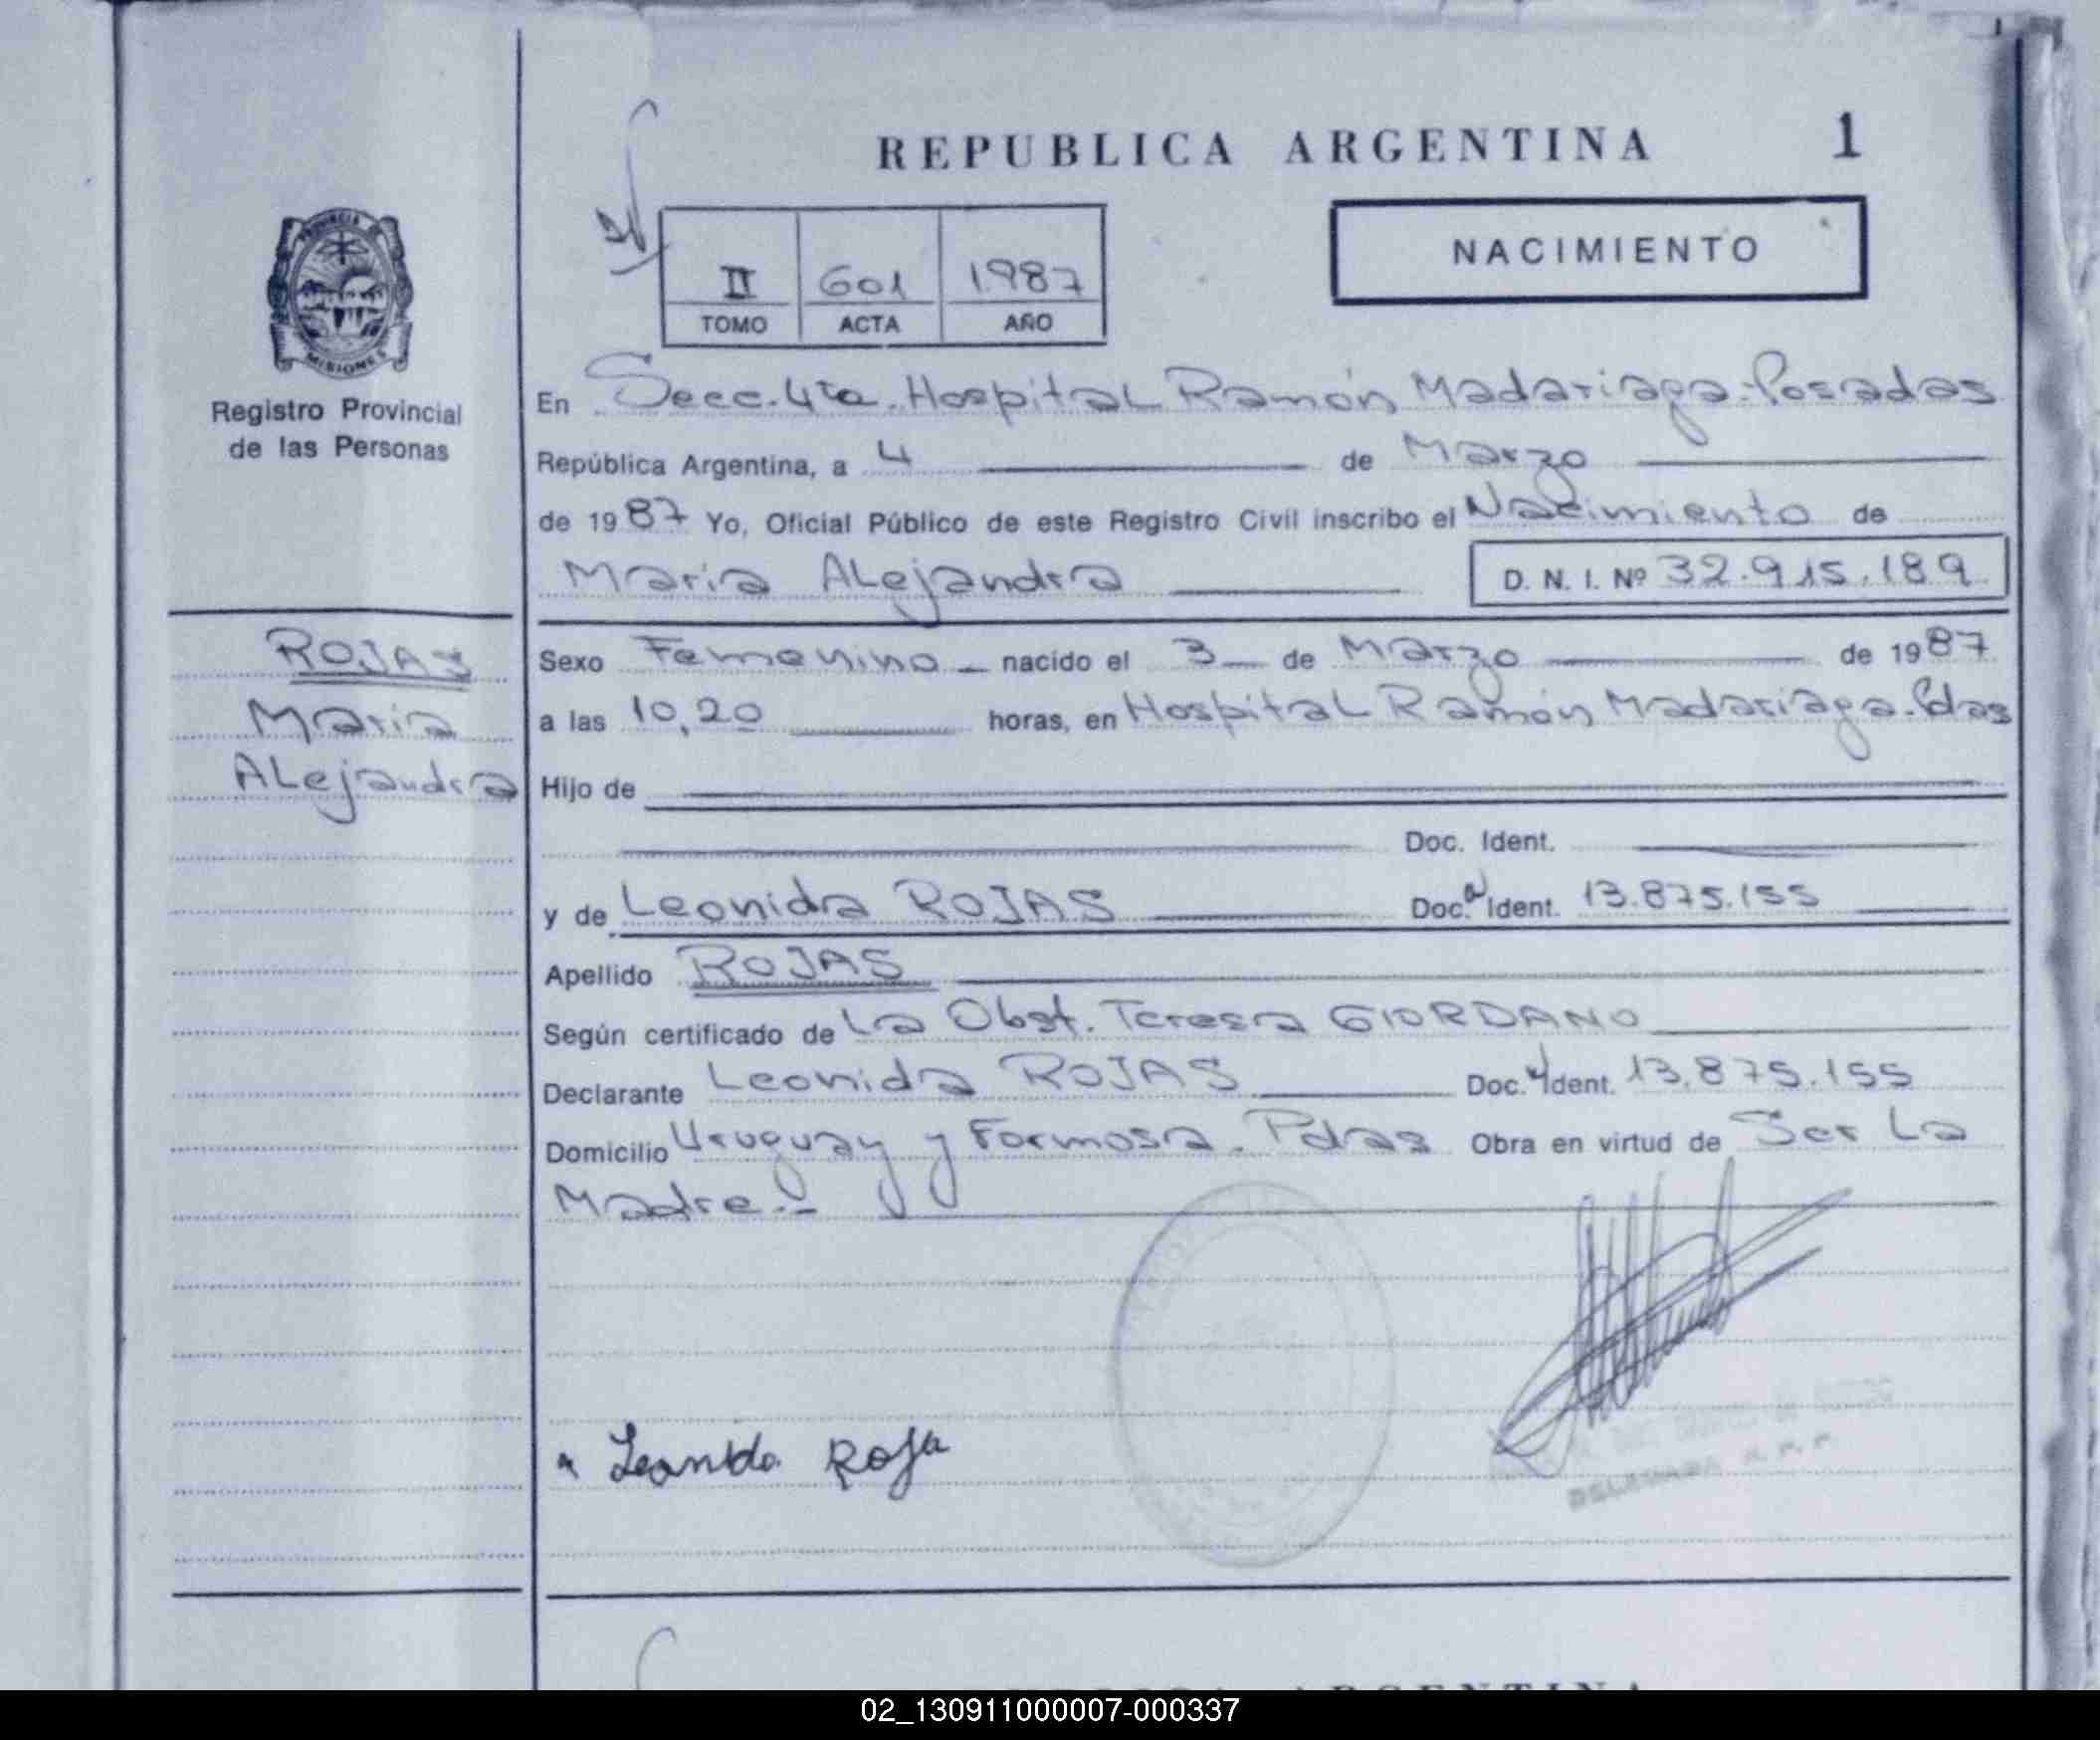 REPUBLICA ARGENTINA 1
NACIMIENTO
II 601 1987
TOMO ACTA AÑO
PROVINCIA
MISIONES
Registro Provincial
de las Personas
En Secc. 4ta. Hospital Ramón Madariaga-Posadas
República Argentina, a 4 de Marzo
de 1987 Yo, Oficial Público de este Registro Civil inscribo el Nacimiento de
Maria ALejandra D. N. I. Nº 32.915.189
ROJAS
Maria
ALejandra
Sexo Femenino nacido el 3 de Marzo de 1987
a las 10,20 horas, en HospitaL Ramón Madariaga-Pdas
Hijo de
Doc. Ident.
y de Leonida ROJAS Doc. Ident. 13.875.155
Apellido ROJAS
Según certificado de La Obst. Teresa GIORDANO
Declarante Leonida ROJAS Doc. Ident. 13.875.155
Domicilio Uruguay y Formosa. Pdas Obra en virtud de Ser La
Madre.-
Leonida Roja
DELEGADA R. P. P.
REPUBLICA ARGENTINA
02_130911000007-000337